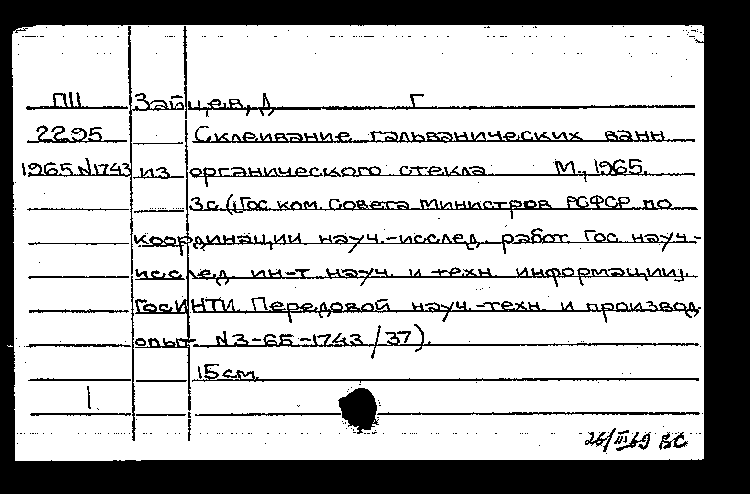 ПII Зайцев, Д Г
2295 Склеивание гальванических ванн
1965 N1743 из органического стекла М., 1965.
3с. (Гос. ком. Совета Министров РСФСР по
координации науч.-исслед. работ. Гос. науч.-
исслед. ин-т науч. и техн. информации.
ГосИНТИ. Передовой науч.-техн. и производ.
опыт. N3-65-1743/37).
15 см.
1
26/III69 ВС